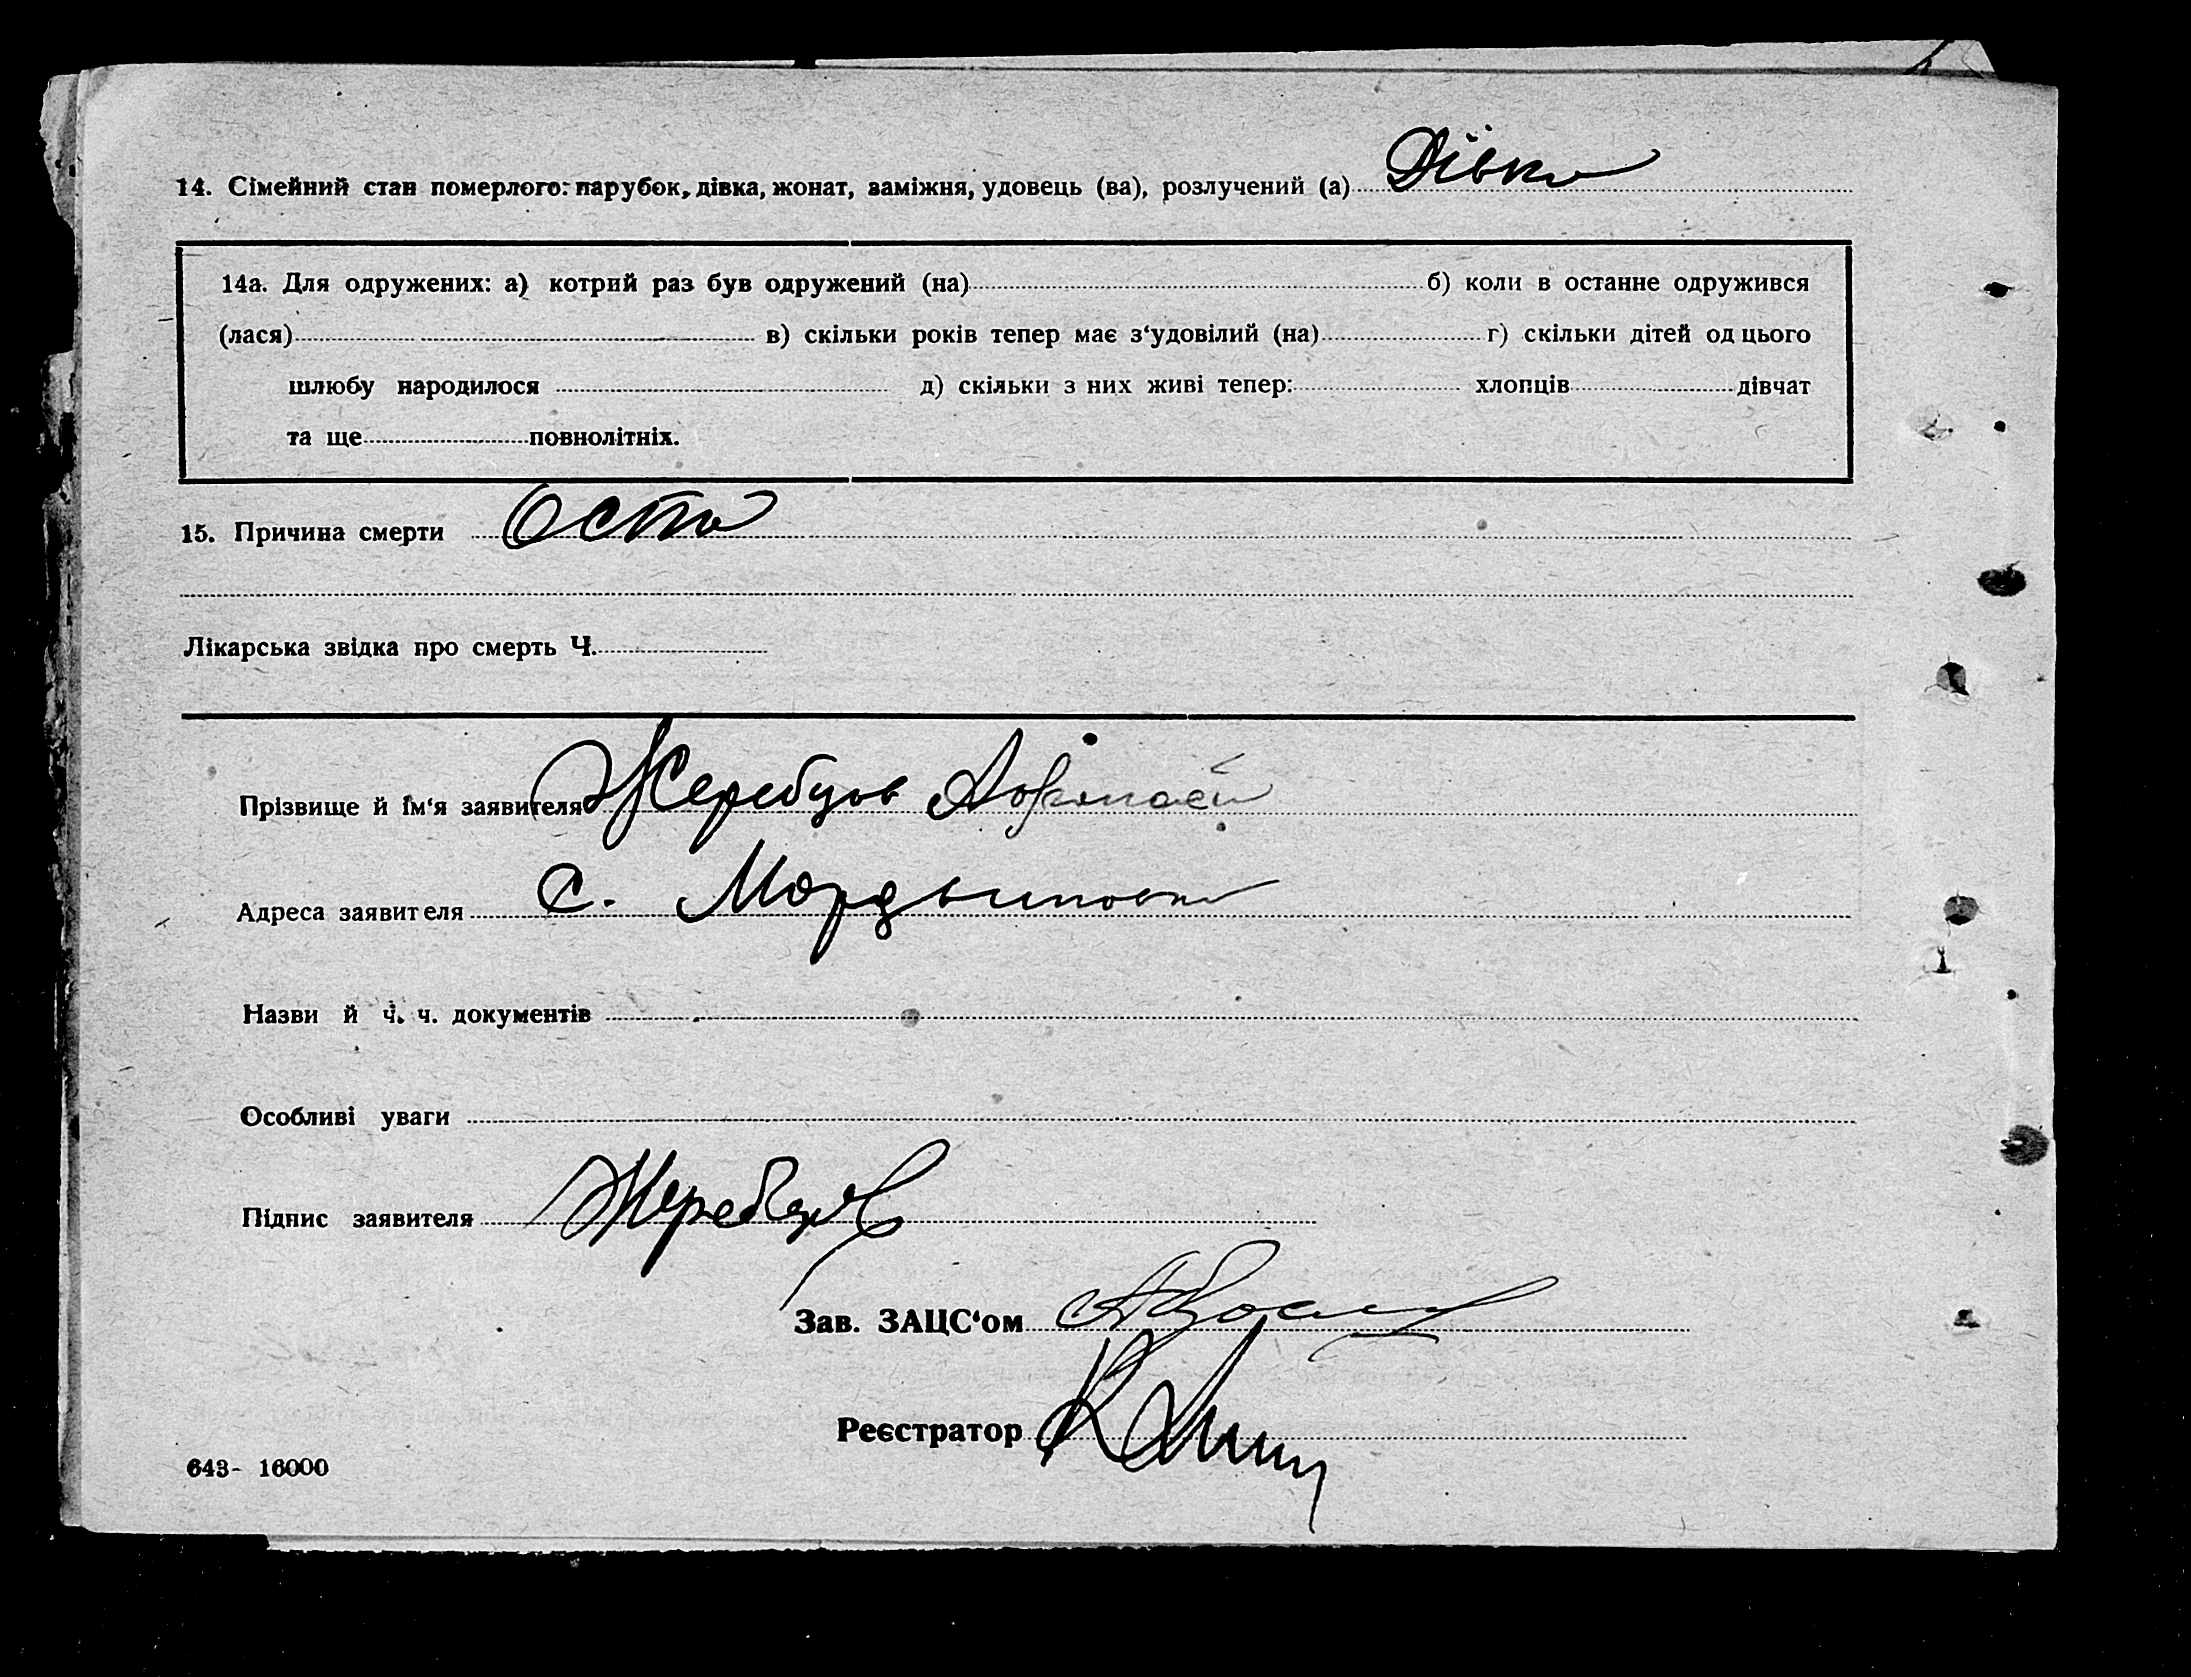 14. Сімейний стан померлого: парубок, дівка, жонат, заміжня, удовець (ва), розлучений (а) Дівка
14а. Для одружених: а) котрий раз був одружений (на) б) коли в останне одружився
(лася) в) скільки років тепер має з‘удовілий (на) г) скільки дітей од цього
шлюбу народилося д) скільки з них живі тепер: хлопців дівчат
та ще повнолітніх.
15. Причина смерти Оспа
Лікарська звідка про смерть Ч.
Прізвище й ім‘я заявителя Жеребцов
Адреса заявителя с. Мордвиновка
Назви й ч. ч. документів
Особливі уваги
Підпис заявителя Жеребцов
Зав. ЗАЦС‘ом
Реєстратор
643- 16000